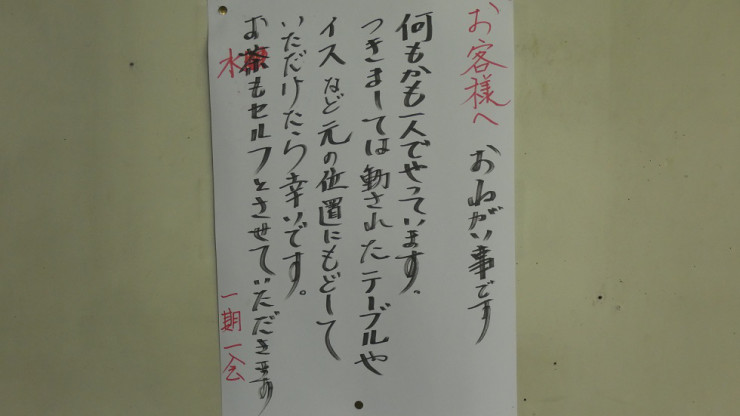 お客様へ おねがい事です
何もかも一人でやっています。
つきましては動されたテーブルや
イスなど元の位置にもどして
いただけたら幸いです。
お水もセルフとさせていただきます
一期一会